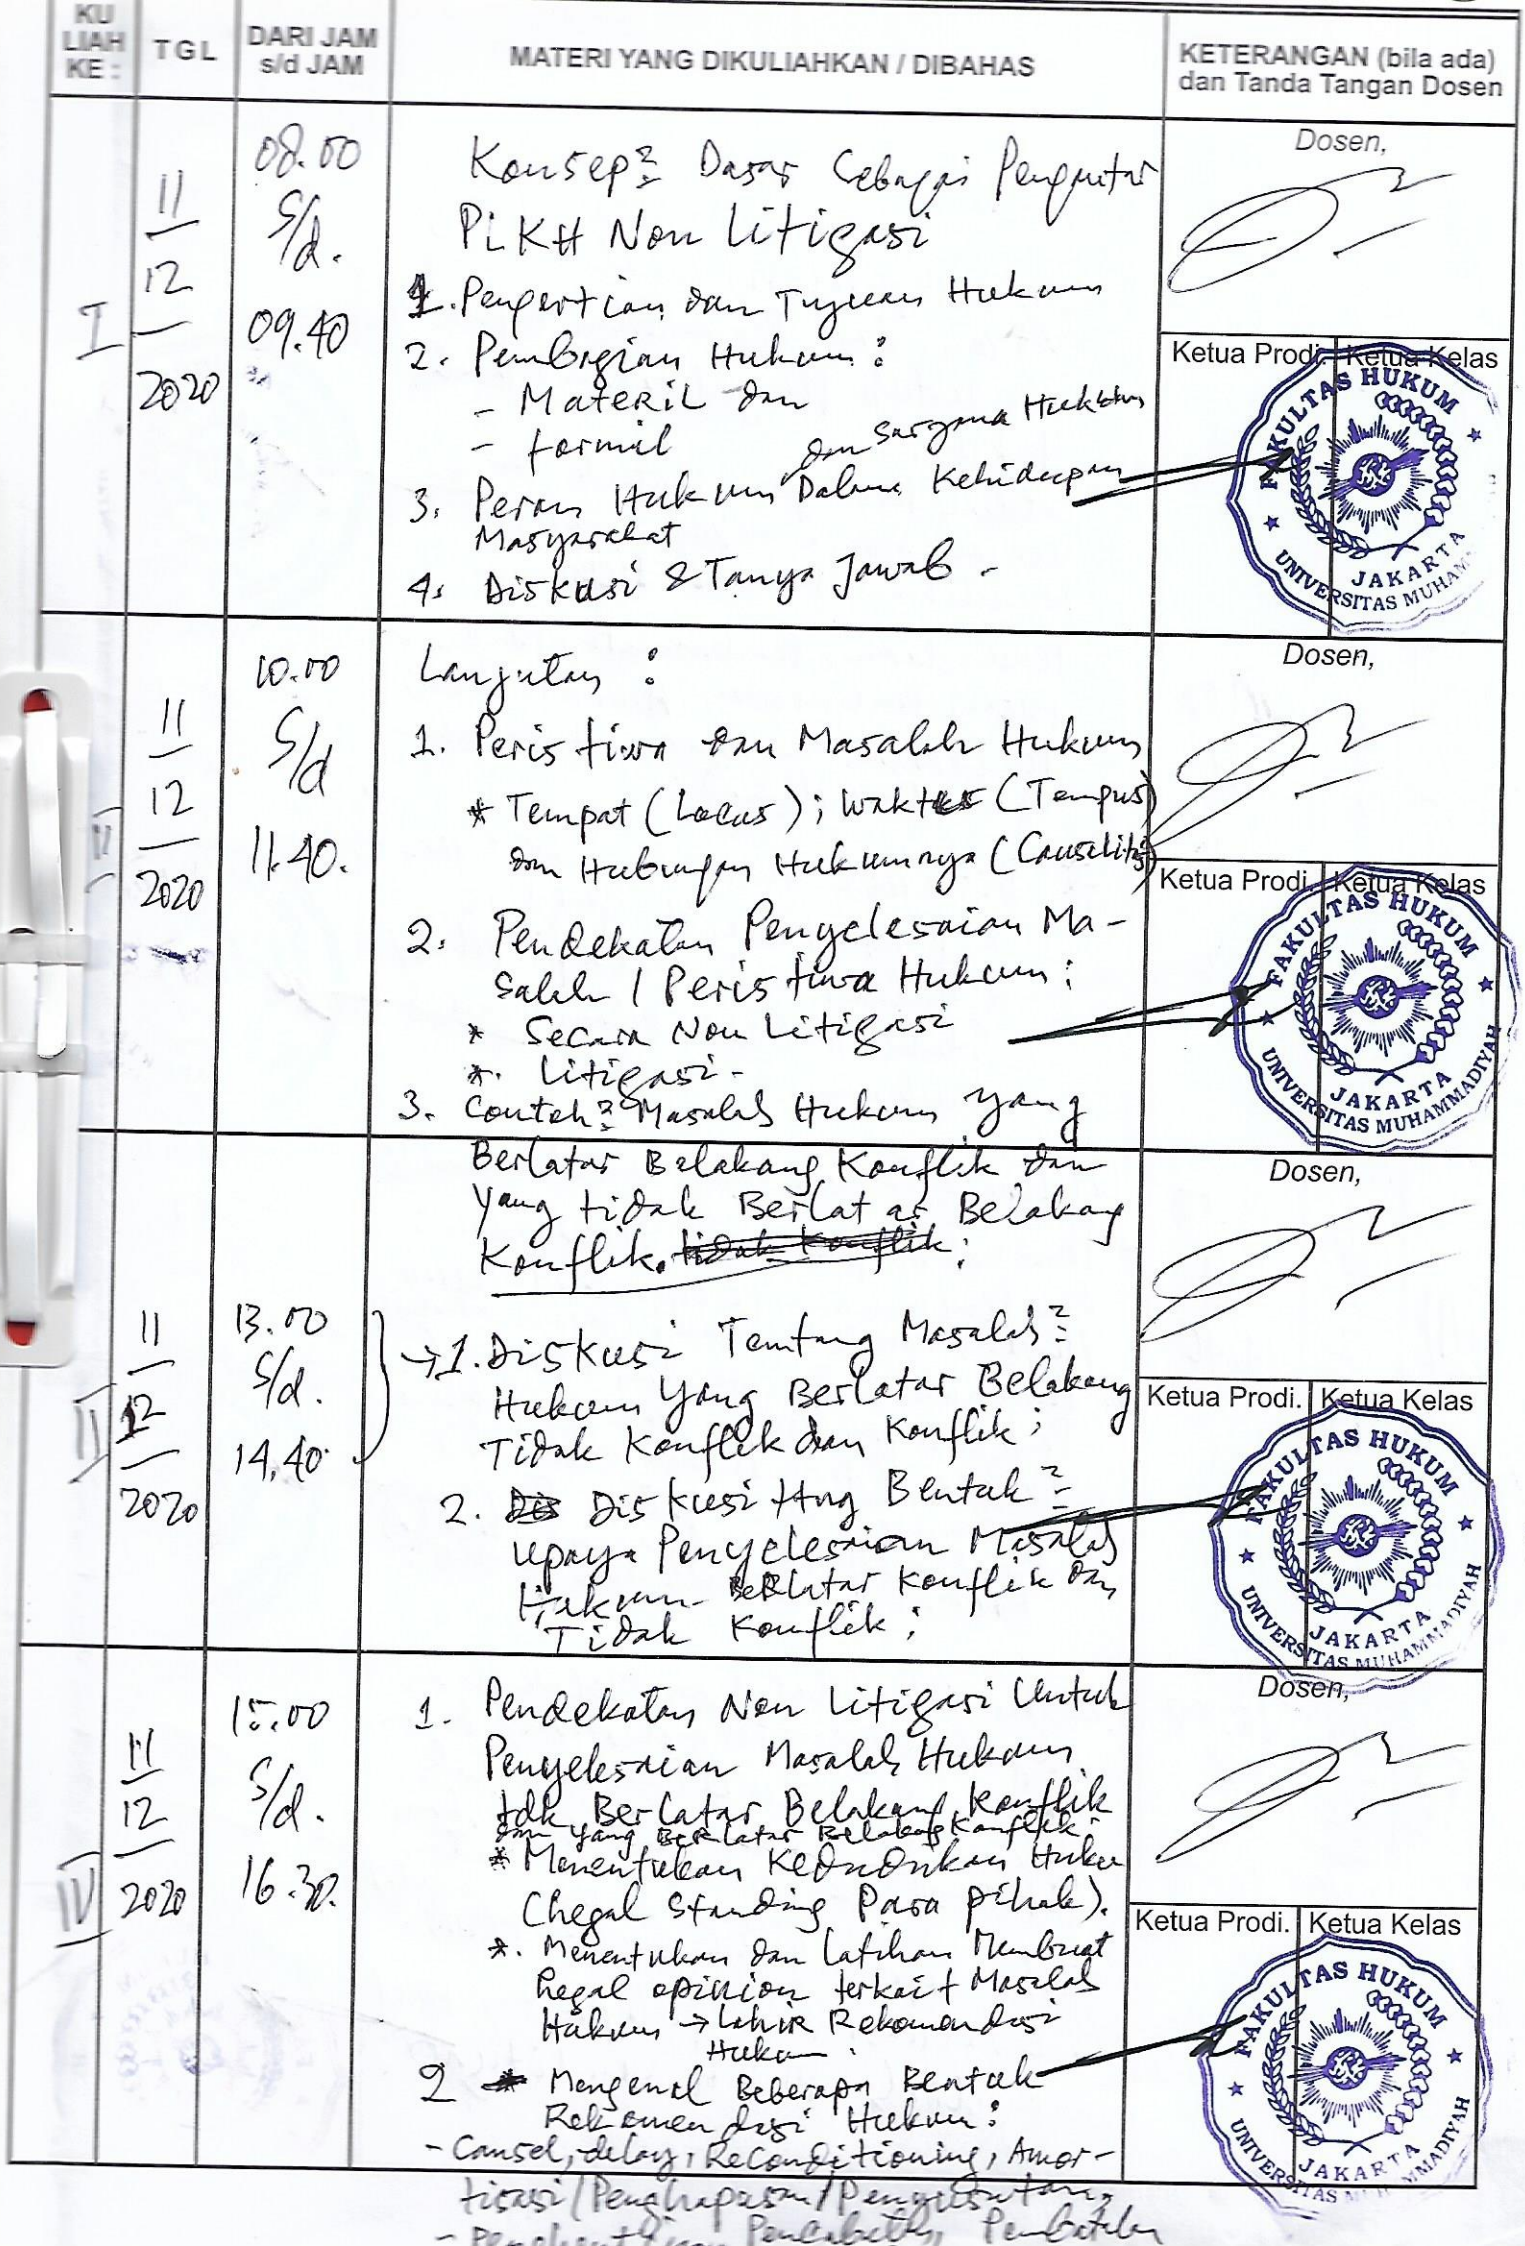 KU
LIAH
KE :
TGL
DARI JAM
s/d JAM
MATERI YANG DIKULIAHKAN / DIBAHAS
KETERANGAN (bila ada)
dan Tanda Tangan Dosen
I
11
12
2020
08.00
s/d.
09.40
Konsep2 Dasar Sebagai Pengantar
PLKH Non Litigasi
1. Pengertian dan Tujuan Hukum
2. Pembagian Hukum :
- Materil dan
- formil
dan Sarjana Hukum
3. Peran Hukum Dalam Kehidupan
Masyarakat
4. Diskusi & Tanya Jawab -
Dosen,
Ketua Prodi. Ketua Kelas
FAKULTAS HUKUM
JAKARTA
UNIVERSITAS MUHAM
II
11
12
2020
10.00
s/d
11.40.
Lanjutan :
1. Peristiwa dan Masalah Hukum
* Tempat (Locus) ; Waktu (Tempus)
dan Hubungan Hukumnya (Causalitas)
2. Pendekatan Penyelesaian Ma-
salah / Peristiwa Hukum :
* Secara Non Litigasi
*. Litigasi -
3. Contoh2 Masalah Hukum yang
Dosen,
Ketua Prodi. Ketua Kelas
FAKULTAS HUKUM
JAKARTA
UNIVERSITAS MUHAMMADIYAH
Berlatar Belakang Konflik dan
yang tidak Berlatar Belakang
Konflik. tidak Konflik ;
III
11
12
2020
13.00
s/d.
14.40.
→ 1. Diskusi Tentang Masalah2
Hukum Yang Berlatar Belakang
Tidak Konflik dan Konflik ;
2. Dis Diskusi ttng Bentuk2
Upaya Penyelesaian Masalah
Hukum Berlatar Konflik dan
Tidak Konflik ;
Dosen,
Ketua Prodi. Ketua Kelas
FAKULTAS HUKUM
JAKARTA
UNIVERSITAS MUHAMMADIYAH
IV
11
12
2020
15.00
s/d.
16.30.
1. Pendekatan Non Litigasi Untuk
Penyelesaian Masalah Hukum
tdk Berlatar Belakang Konflik
dan yang Berlatar Belakang Konflik.
* Menentukan Kedudukan Huku
(Legal Standing Para Pihak).
*. Menentukan dan Latihan Membuat
Legal opinion terkait Masalah
Hukum → Lahir Rekomendasi
Hukum.
2 * Mengenal Beberapa Bentuk
Rekomendasi Hukum :
- Cansel, delay, ReConditioning, Amor-
tisasi / Penghapusan / Penyusutan,
Dosen,
Ketua Prodi. Ketua Kelas
FAKULTAS HUKUM
JAKARTA
UNIVERSITAS MUHAMMADIYAH